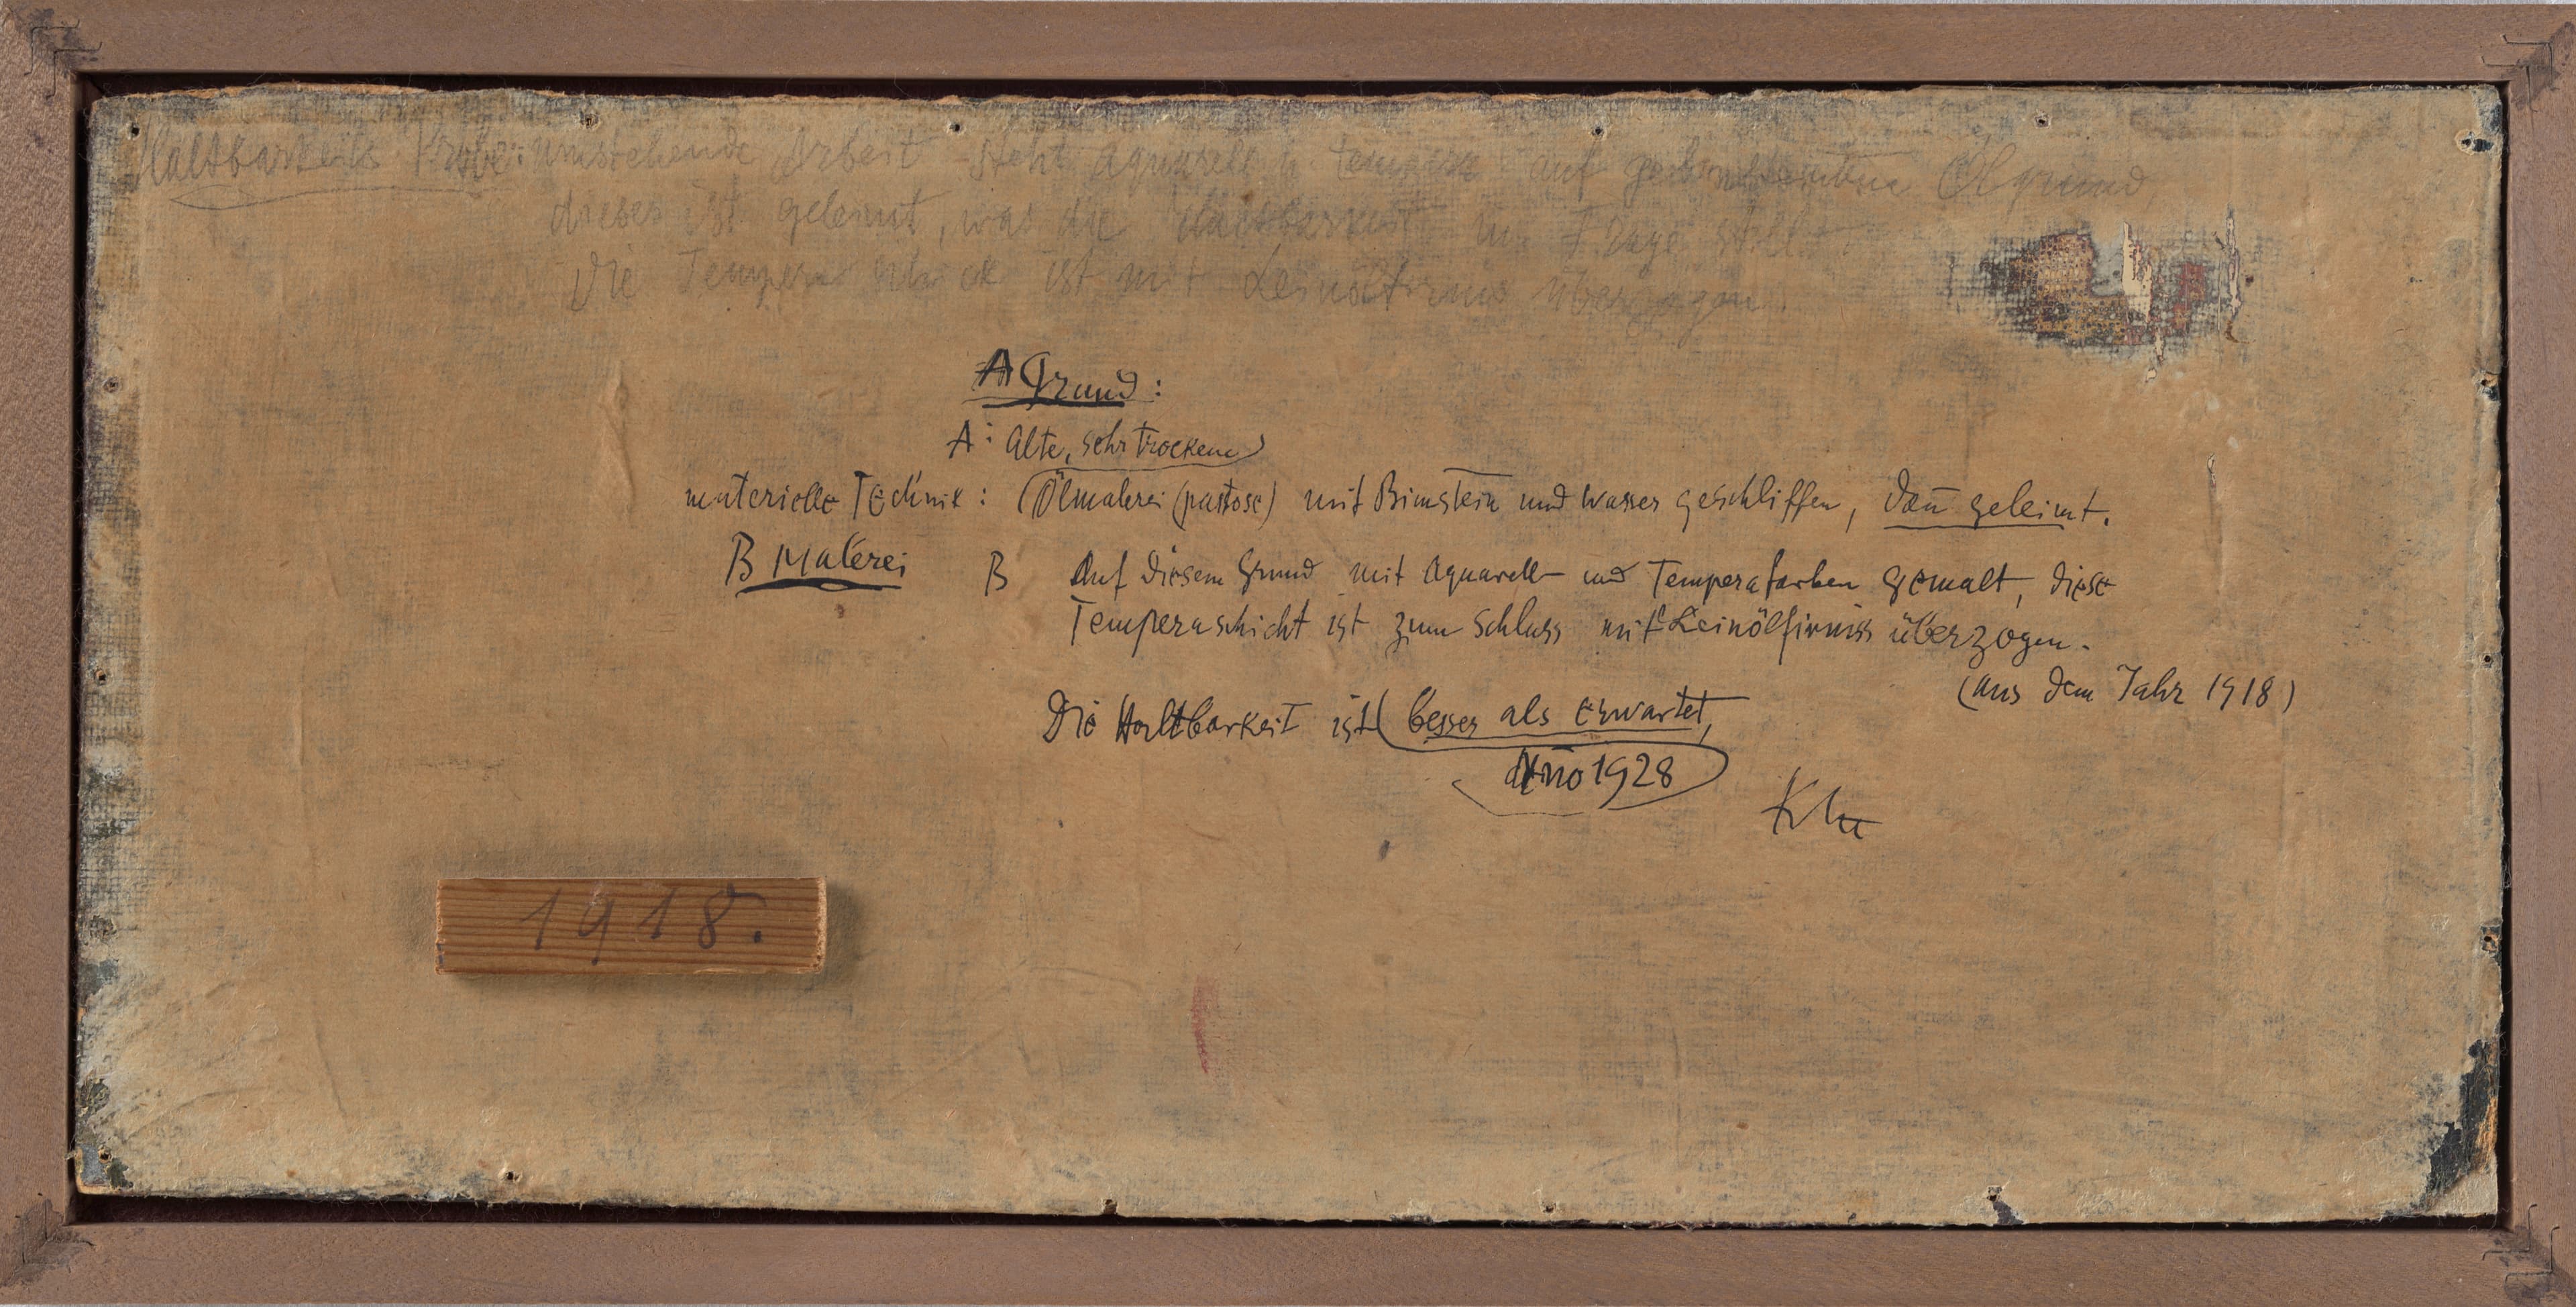 Haltbarkeits Probe: umstehende Arbeit steht aquarell u tempera auf Ölgrund,
dieser ist geleimt, was die Haltbarkeit in Frage stellt.
Die Tempera ist mit Leinölfirnis überzogen.
A Grund:
A: alte, sehr trockene
materielle Technik: Ölmalerei (pastose) mit Bimstein und Wasser geschliffen, dan̄ geleimt.
B Malerei B Auf diesem Grund mit Aquarell- und Temperafarben gemalt, diese
Temperaschicht ist zum Schluss mit Leinölfirniss überzogen.
(aus dem Jahr 1918)
Die Haltbarkeit ist besser als erwartet,
Anno 1928
Klee
1918.